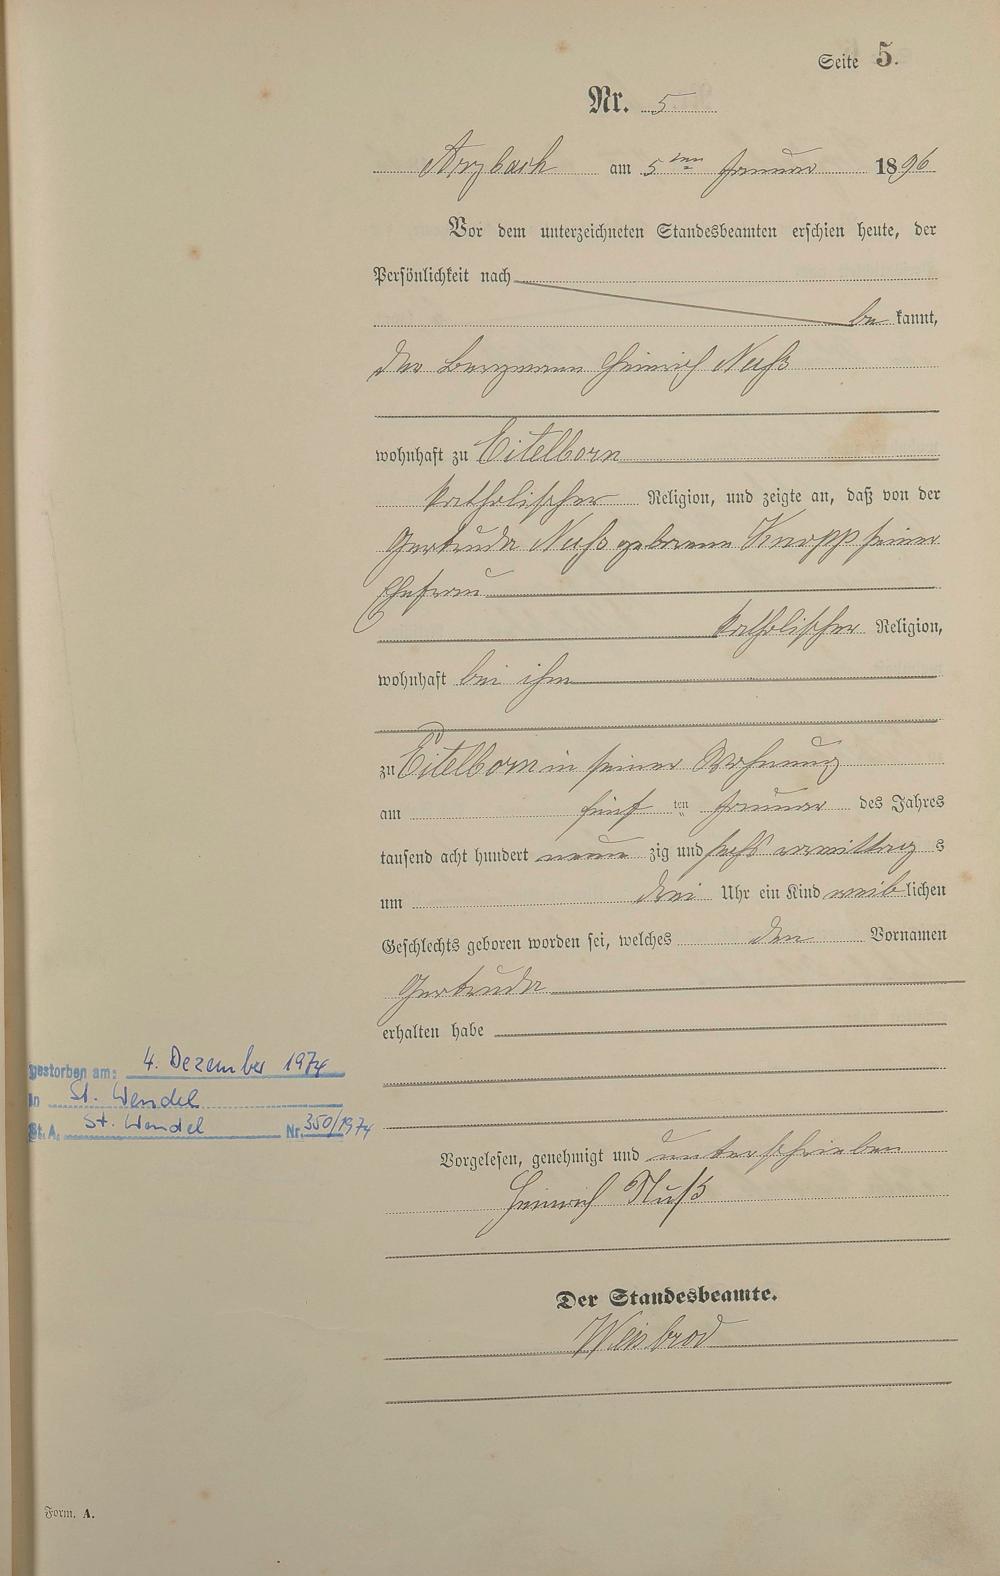 Seite 5.
Nr. 5
Arzbach am 5ten Januar 1896
Vor dem unterzeichneten Standesbeamten erschien heute, der
Persönlichkeit nach
be kannt,
der Bergmann Heinrich Nuß
wohnhaft zu Eitelborn
katholischer Religion, und zeigte an, daß von der
Gertruda Nuß geborene Knopp seiner
Ehefrau
katholischer Religion,
wohnhaft bei ihm
zu Eitelborn in seiner Wohnung
am fünf ten Januar des Jahres
tausend acht hundert neun zig und sechs vormittag s
um drei Uhr ein Kind weib lichen
Geschlechts geboren worden sei, welches den Vornamen
Gertruda
erhalten habe
gestorben am: 4. Dezember 1974
in St. Wendel
St. A. St. Wendel Nr. 350/1974
Vorgelesen, genehmigt und unterschrieben
Heinrich Nuß
Der Standesbeamte.
Weisbrod
Form. A.